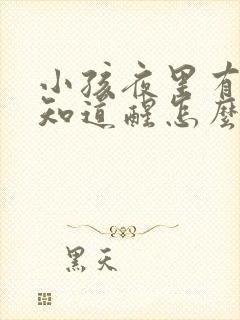 小孩夜里有
知道醒怎麼
黑天